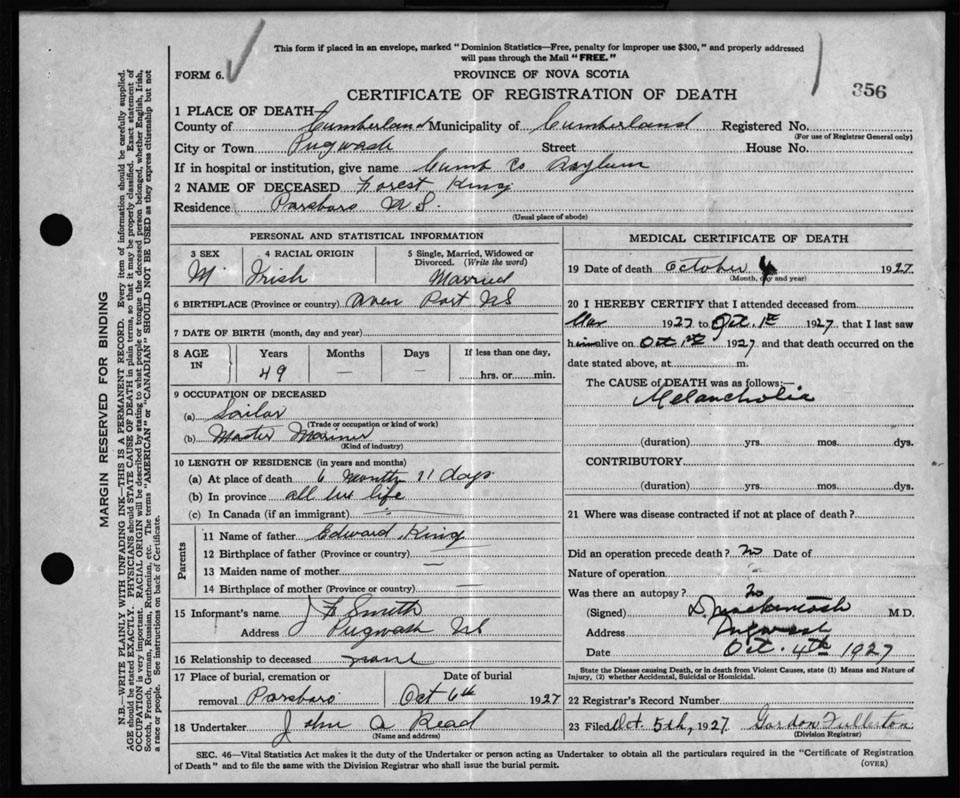 This form if placed in an envelope, marked "Dominion Statistics—Free, penalty for improper use $300," and properly addressed
will pass through the Mail "FREE."
FORM 6.
PROVINCE OF NOVA SCOTIA
356
CERTIFICATE OF REGISTRATION OF DEATH
1 PLACE OF DEATH—
County of Cumberland Municipality of Cumberland Registered No.
(For use of Registrar General only)
City or Town Pugwash Street House No.
If in hospital or institution, give name Cumb Co Asylum
2 NAME OF DECEASED Forest King
Residence Parsboro N S.
(Usual place of abode)
PERSONAL AND STATISTICAL INFORMATION
3 SEX 4 RACIAL ORIGIN 5 Single, Married, Widowed or Divorced. (Write the word)
M Irish Married
6 BIRTHPLACE (Province or country) Aven Port NS
7 DATE OF BIRTH (month, day and year)
8 AGE IN Years Months Days If less than one day,
49 — — hrs. or min.
9 OCCUPATION OF DECEASED
(a) Sailar
(Trade or occupation or kind of work)
(b) Master Mariner
(Kind of industry)
10 LENGTH OF RESIDENCE (in years and months)
(a) At place of death 6 Months 11 days
(b) In province all his life
(c) In Canada (if an immigrant)
Parents
11 Name of father Edward King
12 Birthplace of father (Province or country) —
13 Maiden name of mother —
14 Birthplace of mother (Province or country) —
15 Informant's name J F Smith
Address Pugwash NS
16 Relationship to deceased none
17 Place of burial, cremation or removal Parsboro Date of burial Oct 6th 1927
18 Undertaker John A Read
(Name and address)
MEDICAL CERTIFICATE OF DEATH
19 Date of death October 4 1927
(Month, day and year)
20 I HEREBY CERTIFY that I attended deceased from
Mar 1927 to Oct. 1st 1927 that I last saw
him alive on Oct 1st 1927 and that death occurred on the
date stated above, at m.
The CAUSE of DEATH was as follows:—
Melancholia
(duration) yrs. mos. dys.
CONTRIBUTORY
(duration) yrs. mos. dys.
21 Where was disease contracted if not at place of death?
Did an operation precede death? no Date of
Nature of operation
Was there an autopsy? no
(Signed) D Mackintosh M.D.
Address Pugwash
Date Oct. 4th 1927
State the Disease causing Death, or in death from Violent Causes, state (1) Means and Nature of
Injury, (2) whether Accidental, Suicidal or Homicidal.
22 Registrar's Record Number
23 Filed Oct. 5th, 1927 Gordon Fullerton
(Division Registrar)
SEC. 46—Vital Statistics Act makes it the duty of the Undertaker or person acting as Undertaker to obtain all the particulars required in the "Certificate of Registration
of Death" and to file the same with the Division Registrar who shall issue the burial permit.
(OVER)
MARGIN RESERVED FOR BINDING
N.B.—WRITE PLAINLY WITH UNFADING INK—THIS IS A PERMANENT RECORD. Every item of information should be carefully supplied.
AGE should be stated EXACTLY. PHYSICIANS should STATE CAUSE OF DEATH in plain terms, so that it may be properly classified. Exact statement of
OCCUPATION is very important. RACIAL ORIGIN will be described by stating to what people or tongue the deceased person belonged, whether English, Irish,
Scotch, French, German, Russian, Ruthenian, etc. The terms "AMERICAN" or "CANADIAN" SHOULD NOT BE USED as they express citizenship but not
a race or people. See instructions on back of Certificate.